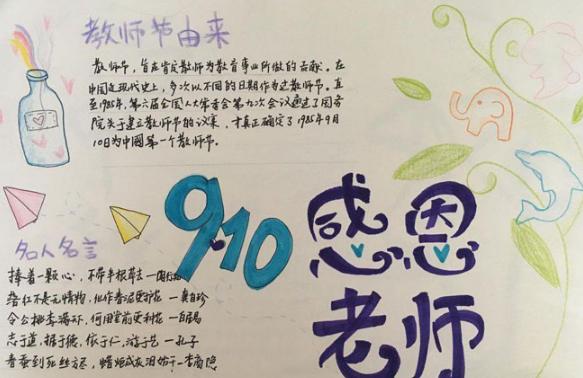 教师节由来
教师节，旨在肯定教师为教育事业所做的贡献。在
中国近现代史上，多次以不同的日期作为过教师节。直
至1985年，第六届全国人大常委会第九次会议通过了国务
院关于建立教师节的议案，才真正确定了1985年9月
10日为中国第一个教师节。
9.10
感恩
老师
名人名言
捧着一颗心，不带半根草去 —陶行知
落红不是无情物，化作春泥更护花 —龚自珍
令公桃李满天，何用堂前更种花 —白居易
志于道，据于德，依于仁，游于艺 —孔子
春蚕到死丝方尽，蜡炬成灰泪始干 —李商隐